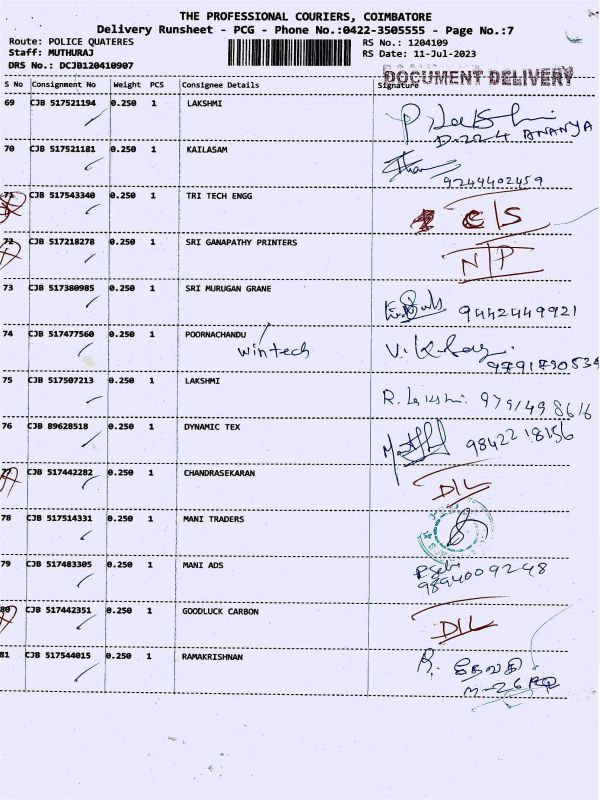 THE PROFESSIONAL COURIERS, COIMBATORE
Delivery Runsheet - PCG - Phone No.:0422-3505555 - Page No.:7
Route: POLICE QUATERES RS No.: 1204109
Staff: MUTHURAJ RS Date: 11-Jul-2023
DRS No.: DCJB120410907
DOCUMENT DELIVERY
S No Consignment No Weight PCS Consignee Details Signature
69 CJB 517521194 0.250 1 LAKSHMI
D-224 ANANYA
70 CJB 517521181 0.250 1 KAILASAM
9244402459
71 CJB 517543340 0.250 1 TRI TECH ENGG C/S
72 CJB 517218278 0.250 1 SRI GANAPATHY PRINTERS N/P
73 CJB 517380985 0.250 1 SRI MURUGAN GRANE 9442449921
74 CJB 517477560 0.250 1 POORNACHANDU /
wintech
9791730534
75 CJB 517507213 0.250 1 LAKSHMI R. Lakshmi. 9791498616
76 CJB 89628518 0.250 1 DYNAMIC TEX 9842218156
77 CJB 517442282 0.250 1 CHANDRASEKARAN D/L
78 CJB 517514331 0.250 1 MANI TRADERS
79 CJB 517483305 0.250 1 MANI ADS
9894009248
80 CJB 517442351 0.250 1 GOODLUCK CARBON D/L
81 CJB 517544015 0.250 1 RAMAKRISHNAN R. தேவகி
M-26